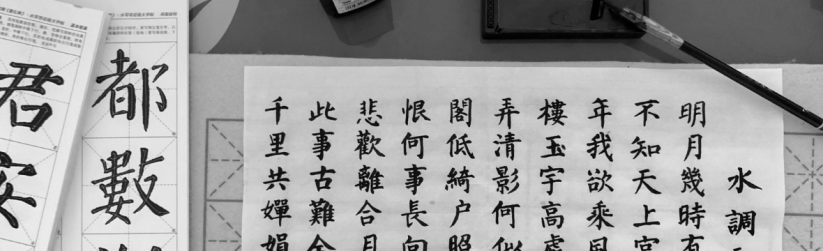 水調
明月幾時有
不知天上宮
年我欲乘風
樓玉宇高處
弄清影何似
閣低綺户照
恨何事長向
悲歡離合月
此事古難全
千里共嬋娟
都數
君安